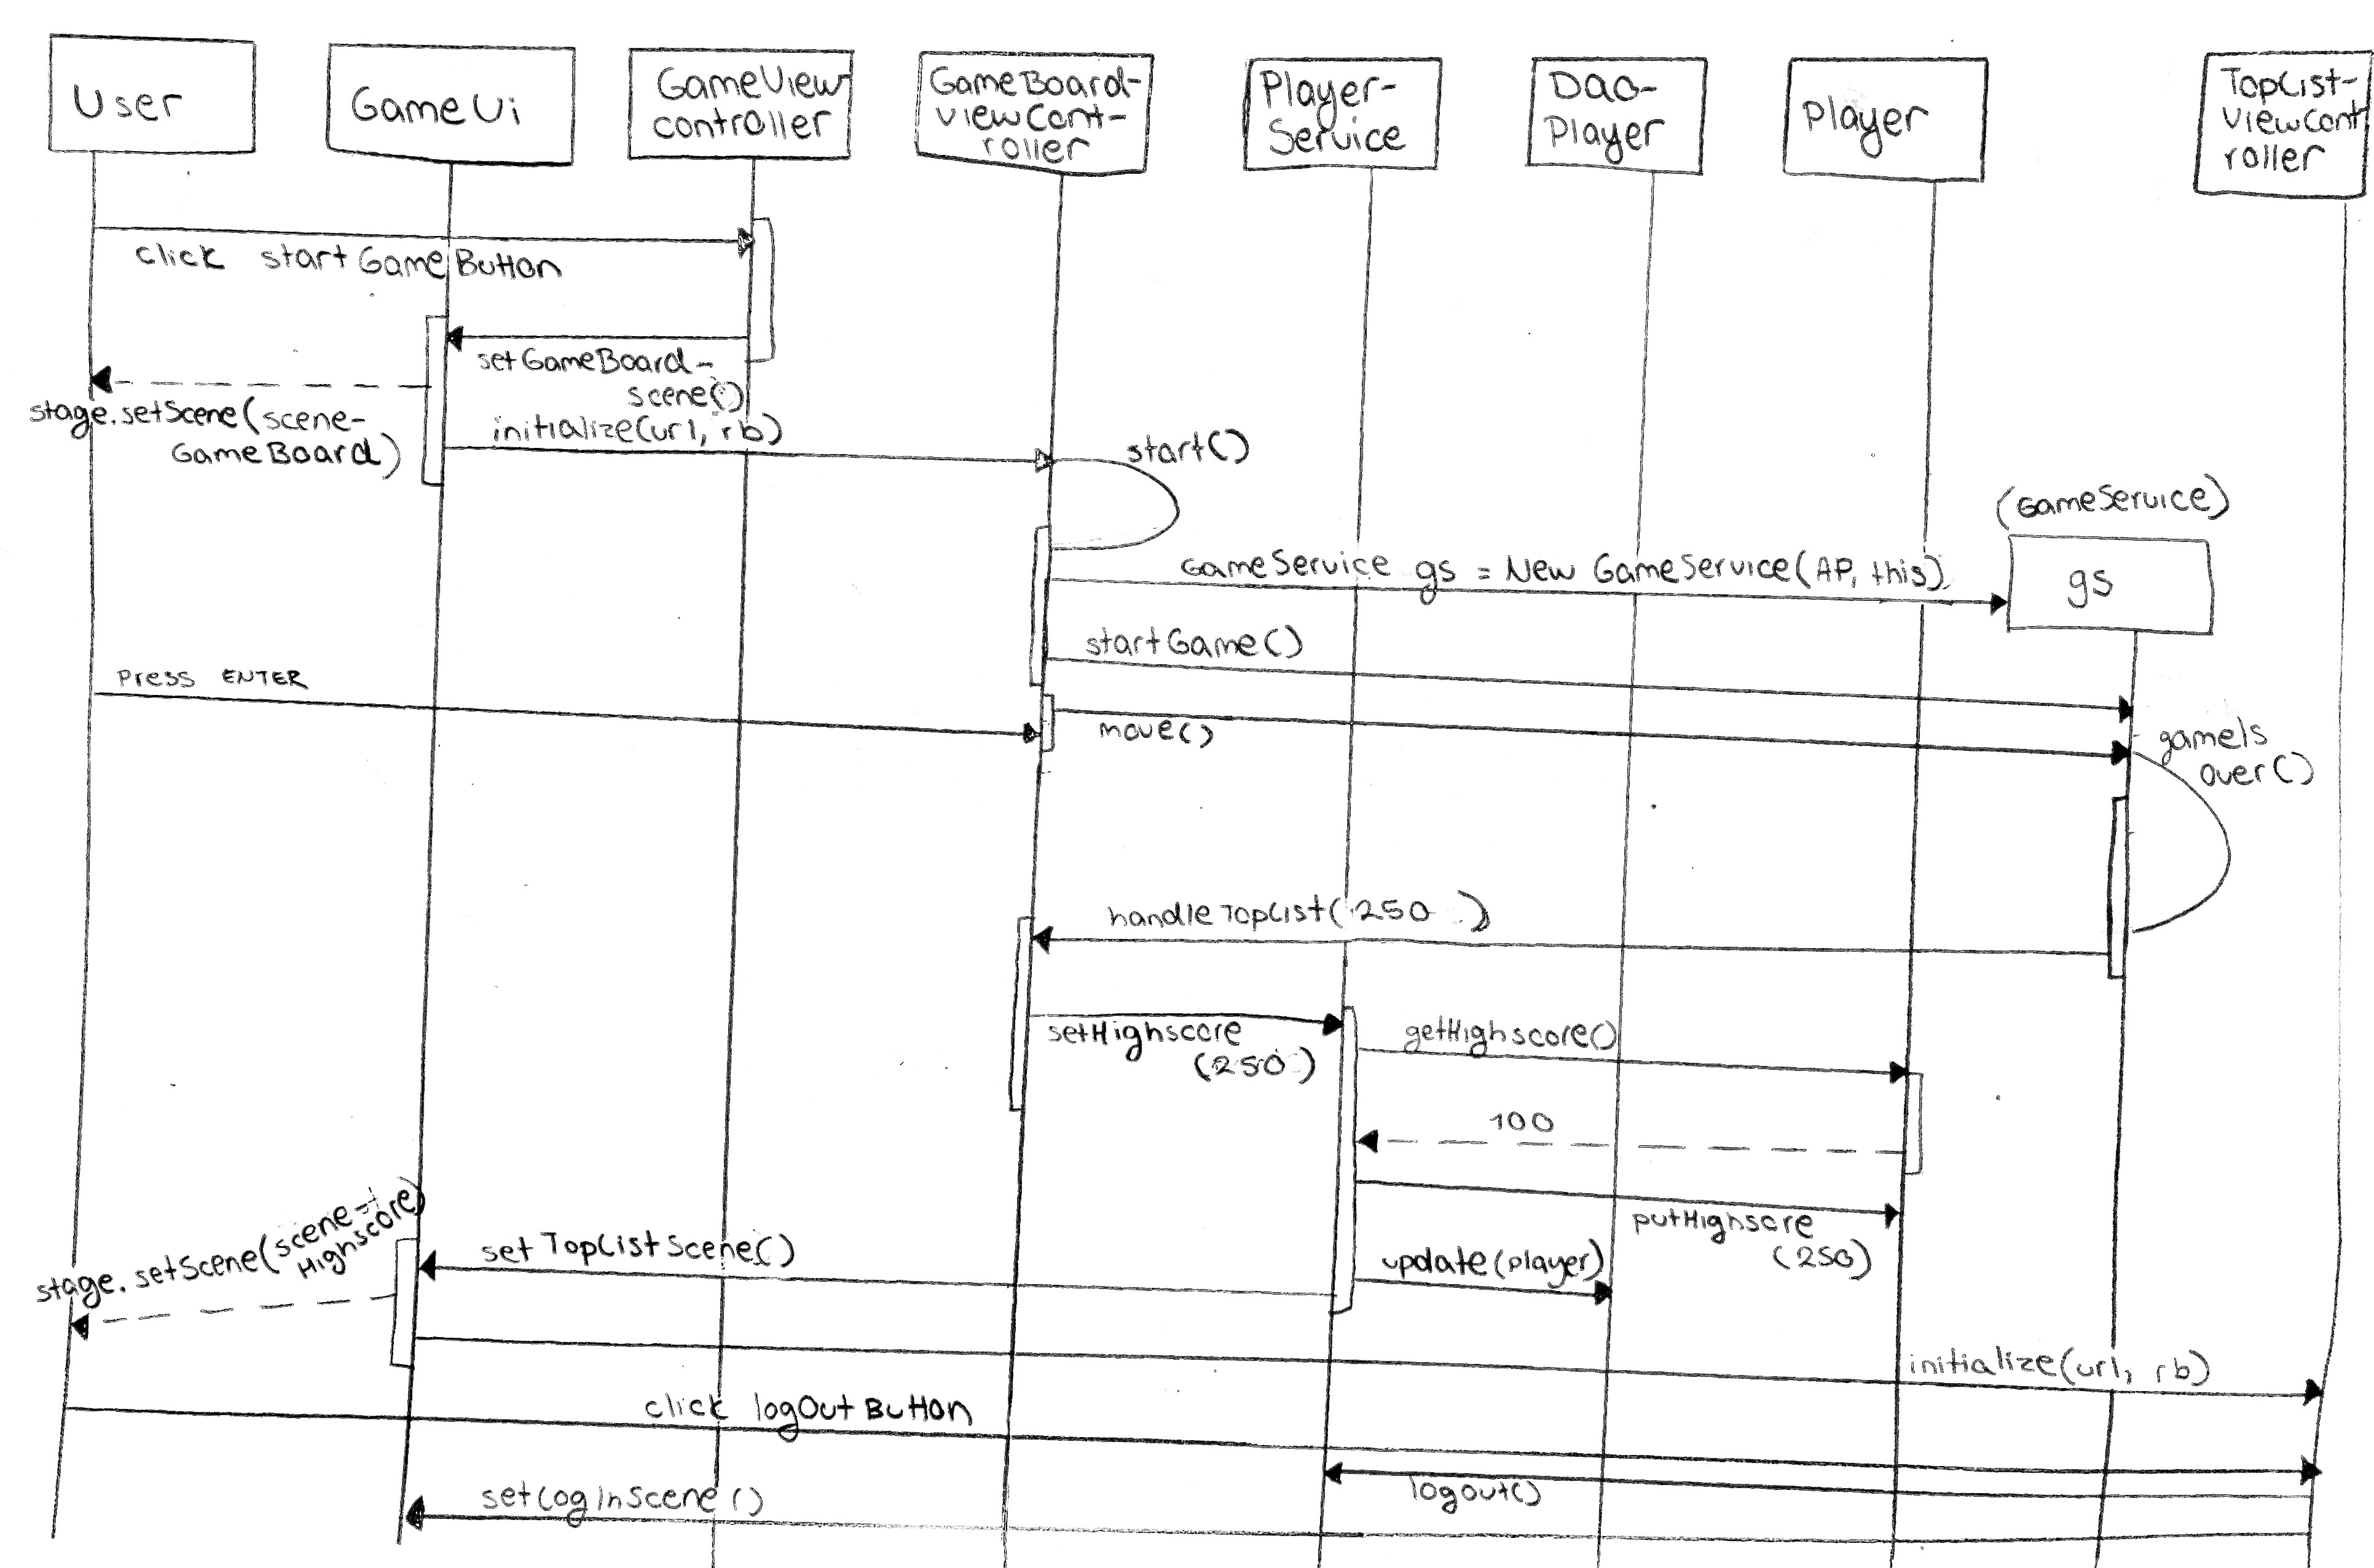 User
GameUi
GameView
controller
GameBoard-
viewCont-
roller
Player-
Service
Dao-
Player
Player
TopList-
ViewCont
roller
click startGameButton
setGameBoard-
scene()
stage.setScene(scene-
GameBoard)
initialize(url, rb)
start()
(GameService)
gs
GameService gs = New GameService(AP, this)
startGame()
Press ENTER
move()
gameIs
over()
handleTopList(250)
setHighscore
(250)
getHighscore()
100
putHighscre
(250)
update(player)
setTopListScene()
stage.setScene(scene-
Highscore)
initialize(url, rb)
click logOutButton
logout()
setLogInScene()